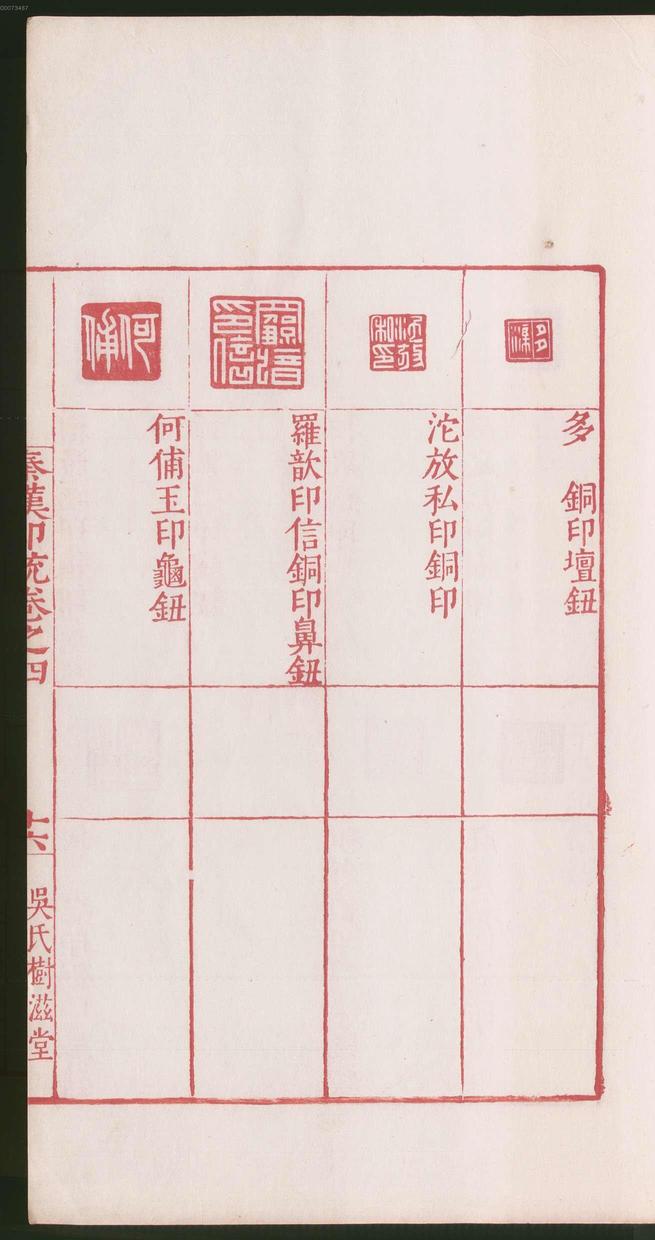 00073487
多 銅印壇鈕
沱放私印銅印
羅歆印信銅印鼻鈕
何俌玉印龜鈕
秦漢印統卷之四
十六
吳氏樹滋堂